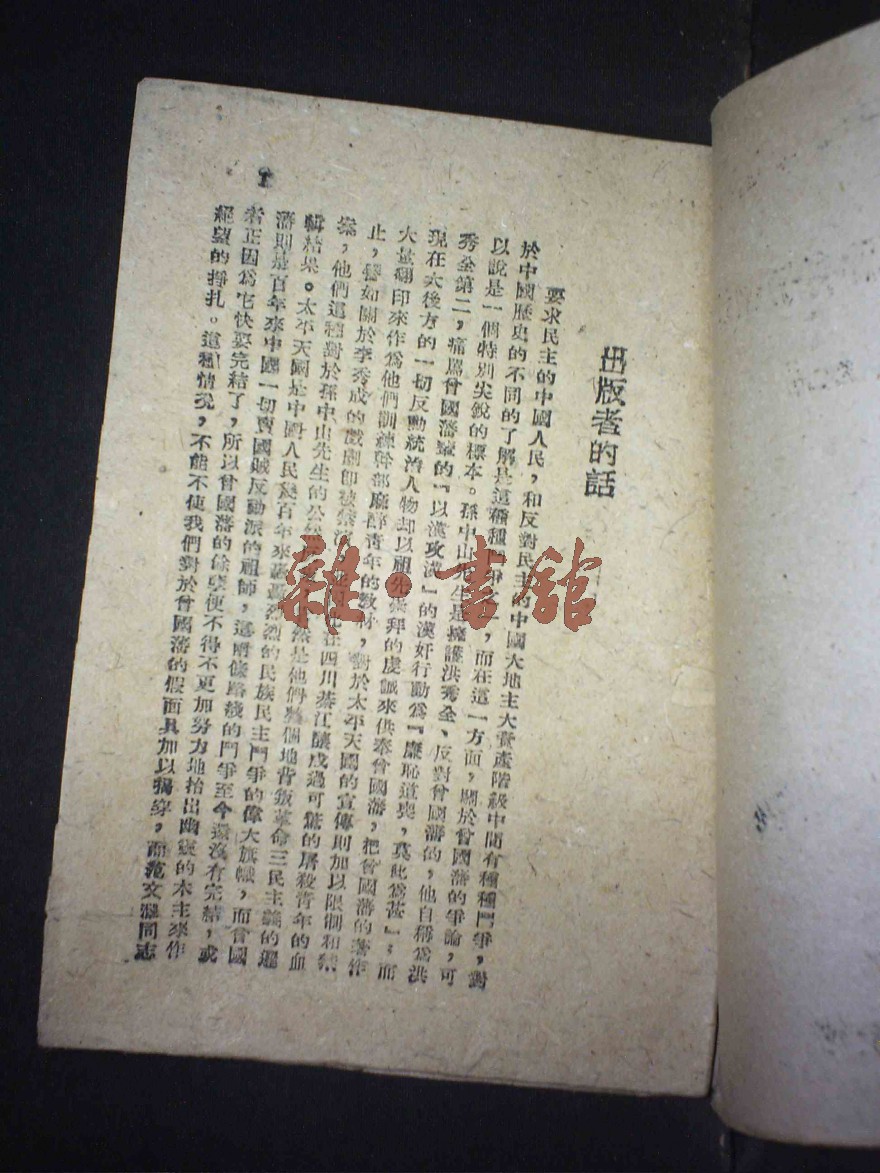 出版者的話
要求民主的中國人民，和反對民主的中國大地主大資產階級中間有種種鬥爭，對
於中國歷史的不同的了解是這種種鬥爭之一，而在這一方面，關於曾國藩的爭論，可
以說是一個特別尖銳的標本。孫中山先生是擁護洪秀全、反對曾國藩的，他自稱爲洪
秀全第二，痛罵曾國藩輩的『以漢攻漢』的漢奸行動爲『廉恥道喪，莫此爲甚』；而
現在大後方的一切反動統治人物却以祖先崇拜的虔誠來供奉曾國藩，把曾國藩的著作
大量翻印來作爲他們訓練幹部麻醉青年的教材，對於太平天國的宣傳則加以限制和禁
止，譬如關於李秀成的戲劇即被禁演，在四川綦江釀成過可驚的屠殺青年的血
案，他們這種對於孫中山先生的公然是他們整個地背叛革命三民主義的邏
輯結果。太平天國是中國人民幾百年來轟轟烈烈的民族民主鬥爭的偉大旗幟，而曾國
藩則是百年來中國一切賣國賊反動派的祖師，這兩條路綫的鬥爭至今還沒有完結，或
者正因爲它快要完結了，所以曾國藩的餘孽便不得不更加努力地抬出幽靈的木主來作
絕望的掙扎。這種情況，不能不使我們對於曾國藩的假面具加以揭穿，而范文瀾同志
雜·書館